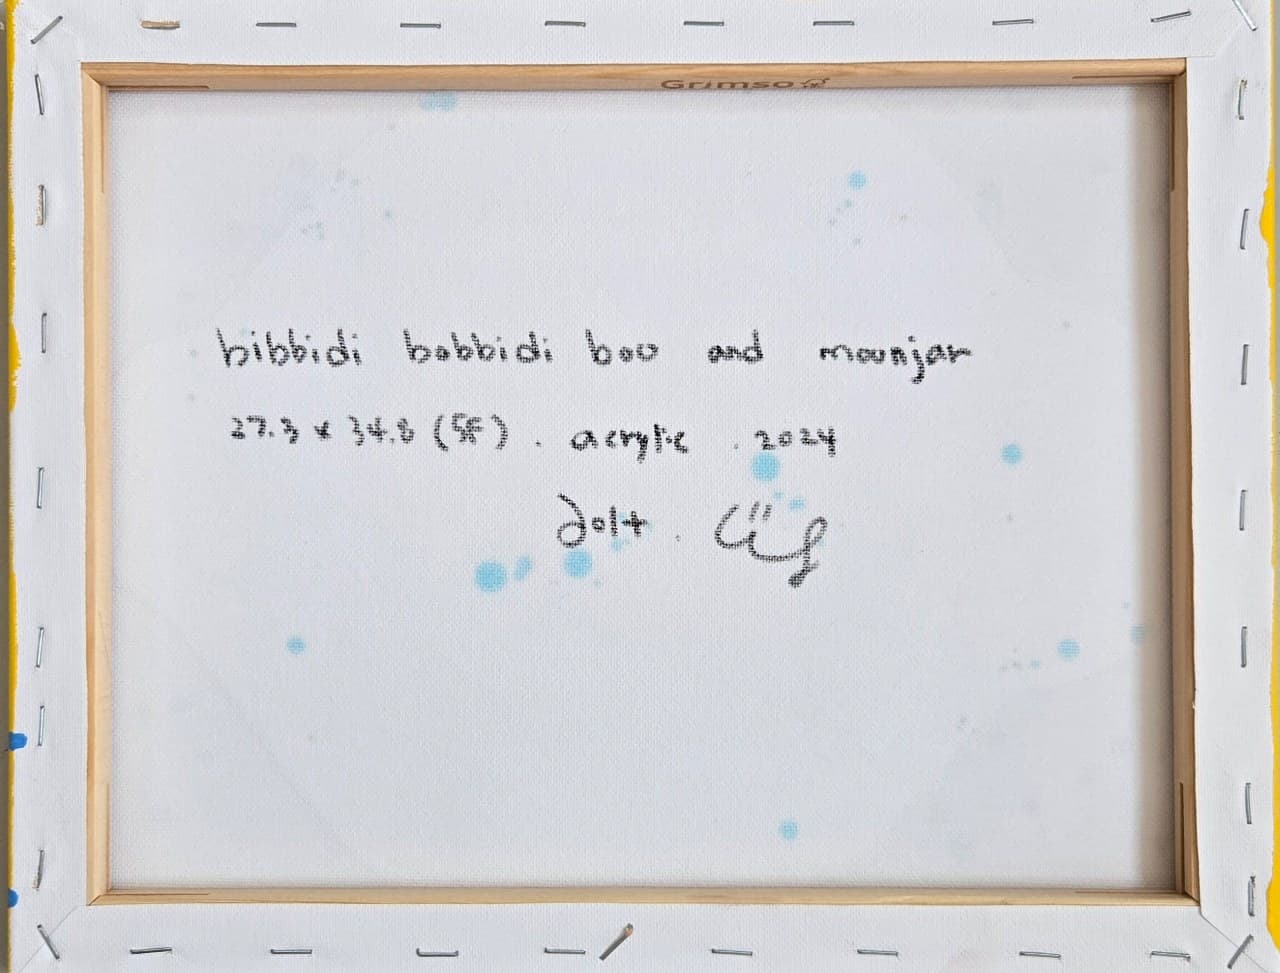 Grimso
bibbidi bobbidi boo and mounjar
27.3 x 34.8 (5F) . acrylic . 2024
dolt .